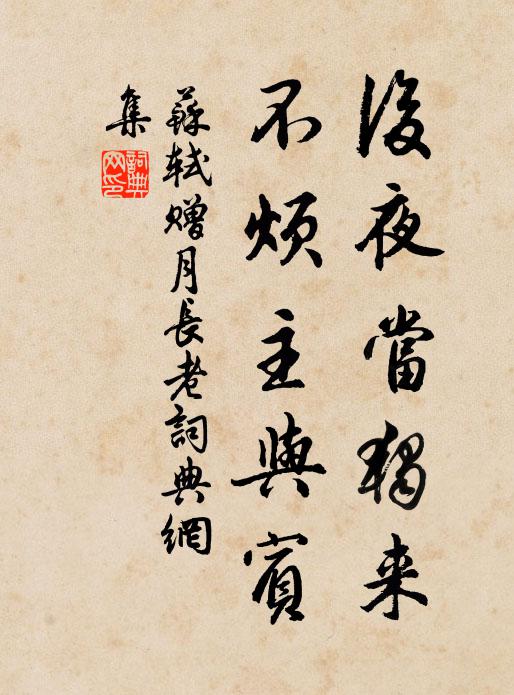 後夜當獨来
不煩主與賓
蘇軾贈月長老詞典網
集
詞典
网印